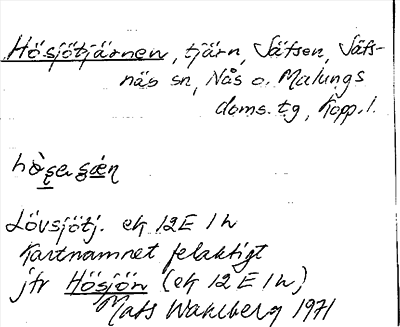 Hösjötjärnen, tjärn, Säfsen, Säfs-
näs sn, Nås o. Malungs
doms. tg, Kopp. l.
Lövsjötj. ek 12E 1h
Kartnamnet felaktigt
jfr Hösjön (ek 12E1h)
Mats Wahlberg 1971